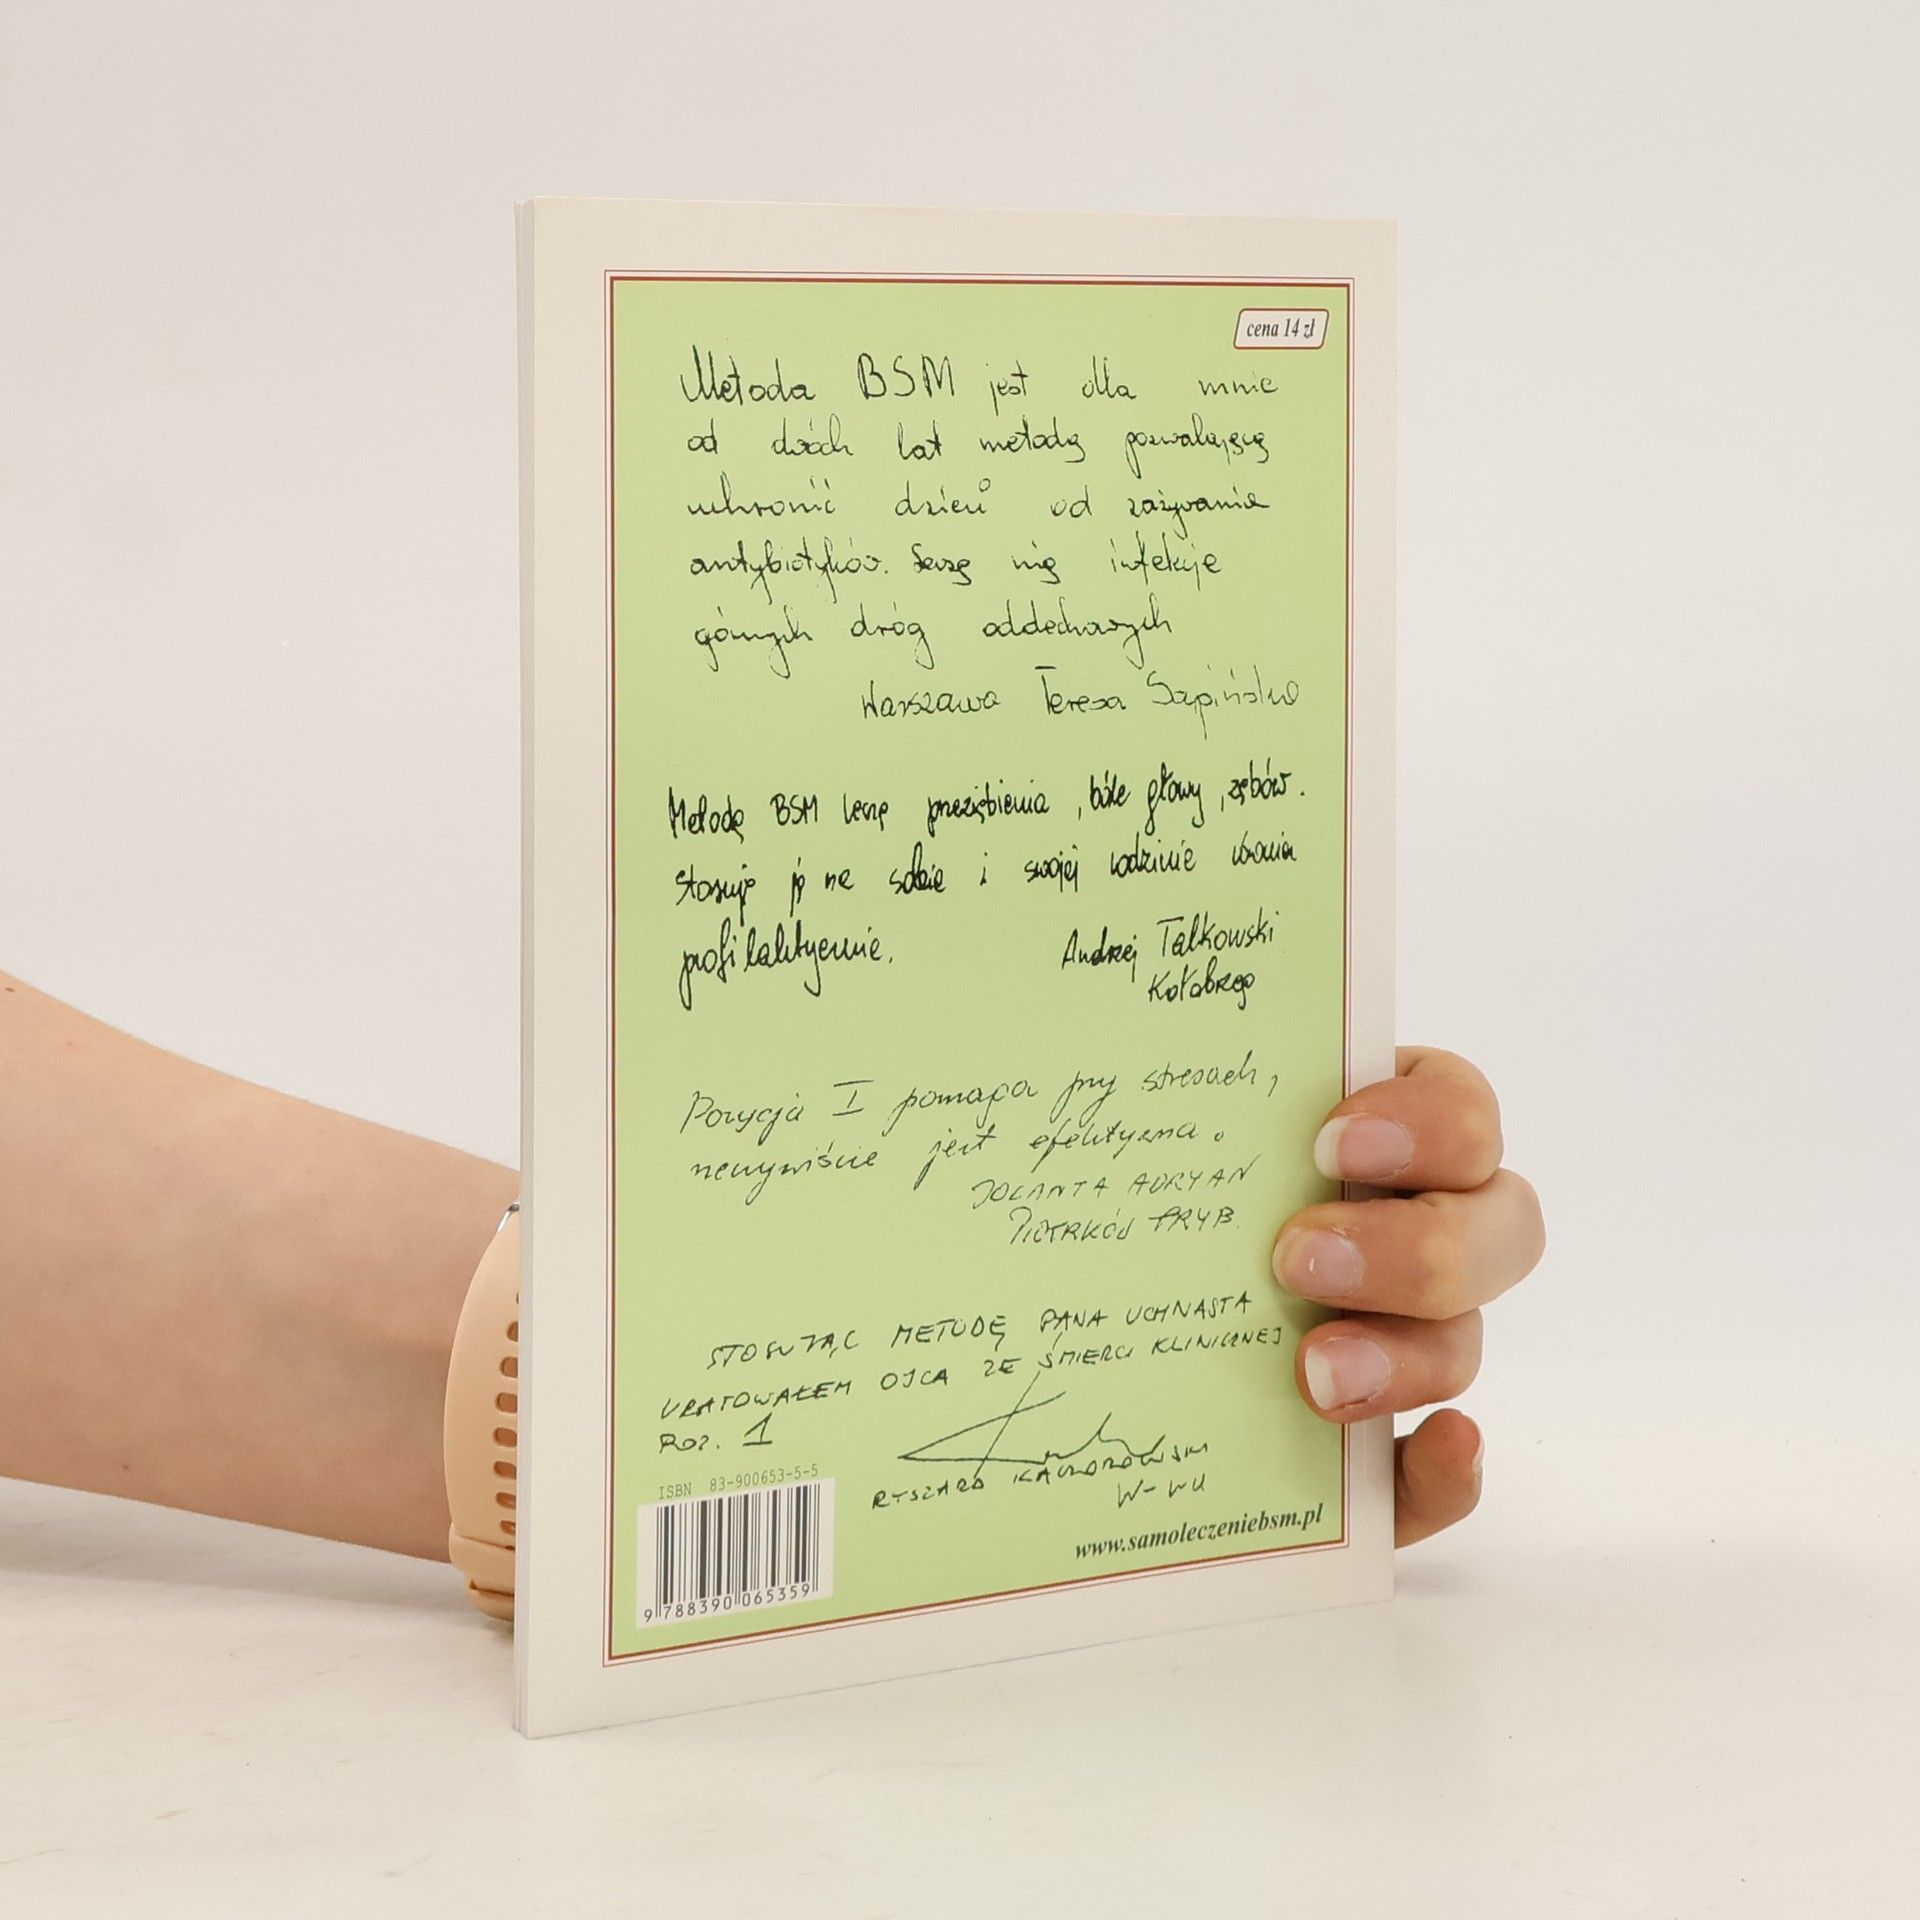 cena 14 zł
Metoda BSM jest dla mnie
od dwóch lat metodą pozwalającą
uchronić dzieci od zażywania
antybiotyków. Leczę nią infekcje
górnych dróg oddechowych
Warszawa Teresa Sapińska
Metodą BSM leczę przeziębienia, bóle głowy, zębów.
Stosuję ją na sobie i swojej rodzinie również
profilaktycznie.
Andrzej Talkowski
Kołobrzeg
Pozycja I pomaga przy stresach,
rzeczywiście jest efektywna.
JOLANTA ADRYAN
PIOTRKÓW TRYB.
STOSUJĄC METODĘ PANA UCHNASTA
URATOWAŁEM OJCA ZE ŚMIERCI KLINICZNEJ
POZ. 1
RYSZARD KACZOROWSKI
W-WA
ISBN 83-900653-5-5
9 788390 065359
www.samoleczeniebsm.pl